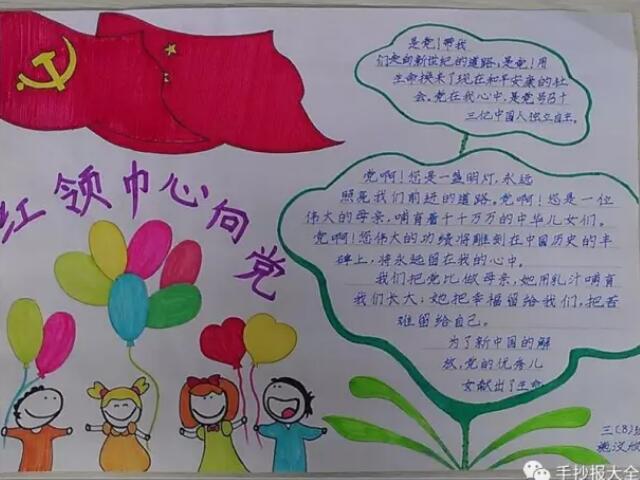 红领巾心向党
是党!带我
们走向新世纪的道路,是党!用
生命换来了现在和平安康的社
会。党在我心中,是党号召十
三亿中国人独立自主。
党啊!您是一盏明灯,永远
照亮我们前进的道路。党啊!您是一位
伟大的母亲,哺育着千千万万的中华儿女们。
党啊!您伟大的功绩将雕刻在中国历史的丰
碑上,将永远留在我的心中。
我们把党比做母亲,她用乳汁哺育
我们长大;她把幸福留给我们,把苦
难留给自己。
为了新中国的解
放,党的优秀儿
女献出了生命
三(8)班
手抄报大全